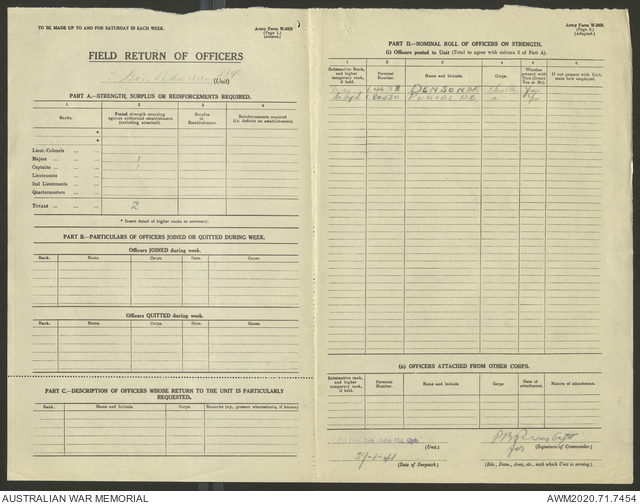 TO BE MADE UP TO AND FOR SATURDAY IN EACH WEEK.
Army Form W.3008.
(Page 1.)
(Adapted.)
FIELD RETURN OF OFFICERS
(Unit)
PART A.—STRENGTH, SURPLUS OR REINFORCEMENTS REQUIRED.
1 2 3 4
Ranks. Posted strength counting against authorized establishment (excluding attached). Surplus to Establishment. Reinforcements required (i.e. deficits on establishment)
*
*
Lieut.-Colonels
Majors 1
Captains 1
Lieutenants
2nd Lieutenants
Quartermasters
TOTALS 2
* Insert detail of higher ranks as necessary.
PART B.—PARTICULARS OF OFFICERS JOINED OR QUITTED DURING WEEK.
Officers JOINED during week.
Rank. Name. Corps. Date. Cause.
Officers QUITTED during week.
Rank. Name. Corps. Date. Cause.
PART C.—DESCRIPTION OF OFFICERS WHOSE RETURN TO THE UNIT IS PARTICULARLY REQUESTED.
Rank. Name and Initials. Corps Remarks (e.g., present whereabouts, if known)
Army Form W.3008.
(Page 2.)
(Adapted.)
PART D.—NOMINAL ROLL OF OFFICERS ON STRENGTH.
(i) Officers posted to Unit (Total to agree with column 2 of Part A).
1 2 3 4 5 6
Substantive Rank, and higher temporary rank, if held. Personal Number. Name and Initials. Corps. Whether present with Unit (Insert Yes or No). If not present with Unit, state how employed.
(ii) OFFICERS ATTACHED FROM OTHER CORPS.
Substantive rank, and higher temporary rank, if held. Personal Number. Name and Initials. Corps Date of attachment. Nature of attachment.
(Unit.)
Capt
for (Signature of Commander.)
29-1-41
(Date of Despatch.)
(Bde., Divn., Area, etc., with which Unit is serving.)
AUSTRALIAN WAR MEMORIAL
AWM2020.71.7454